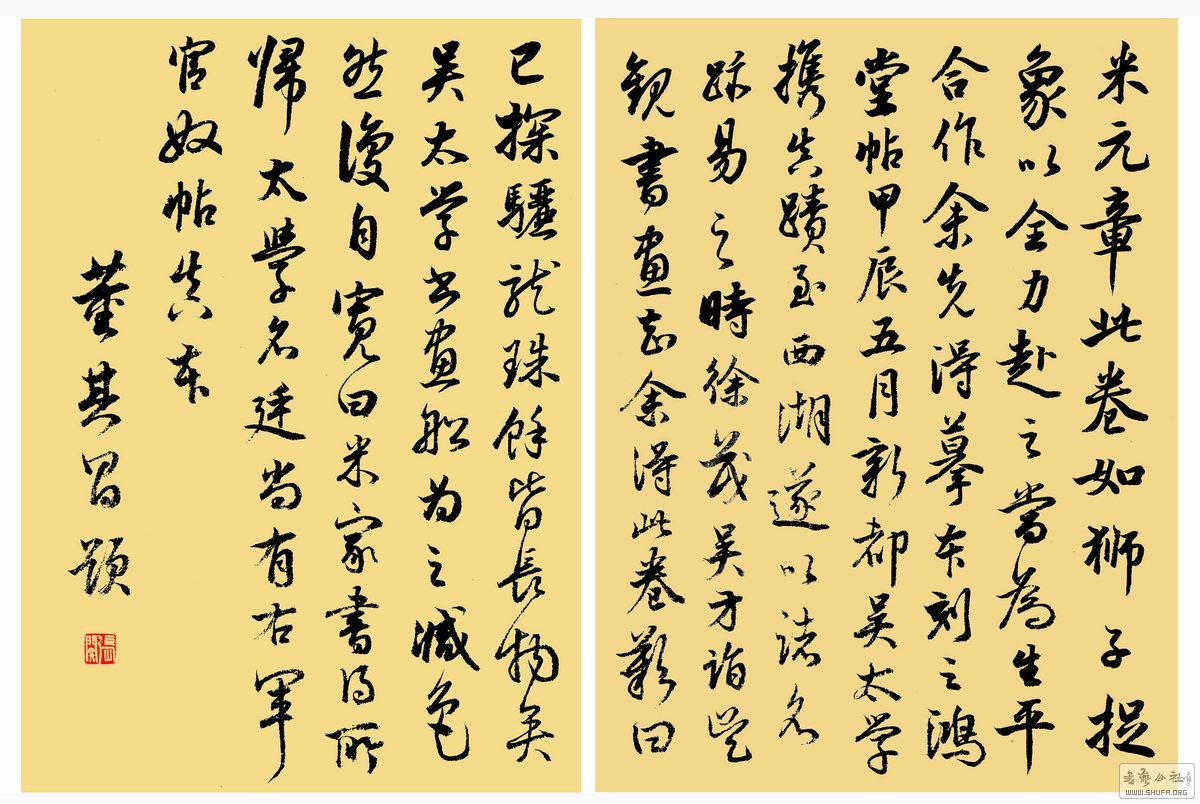 米元章此卷如狮子捉
象以全力赴之當為生平
合作余先得摹本刻之鴻
堂帖甲辰五月新都吳太学
携真蹟至西湖遂以諸名
跡易之時徐茂吳方詣
觀書畫知余得此卷歎曰
已探驪龍珠餘皆長物矣
吳太学書畫船為之減色
然復自寬曰米家書得所
歸太學名廷尚有右軍
官奴帖真本
董其昌題
書藝公社
WWW.SHUFA.ORG